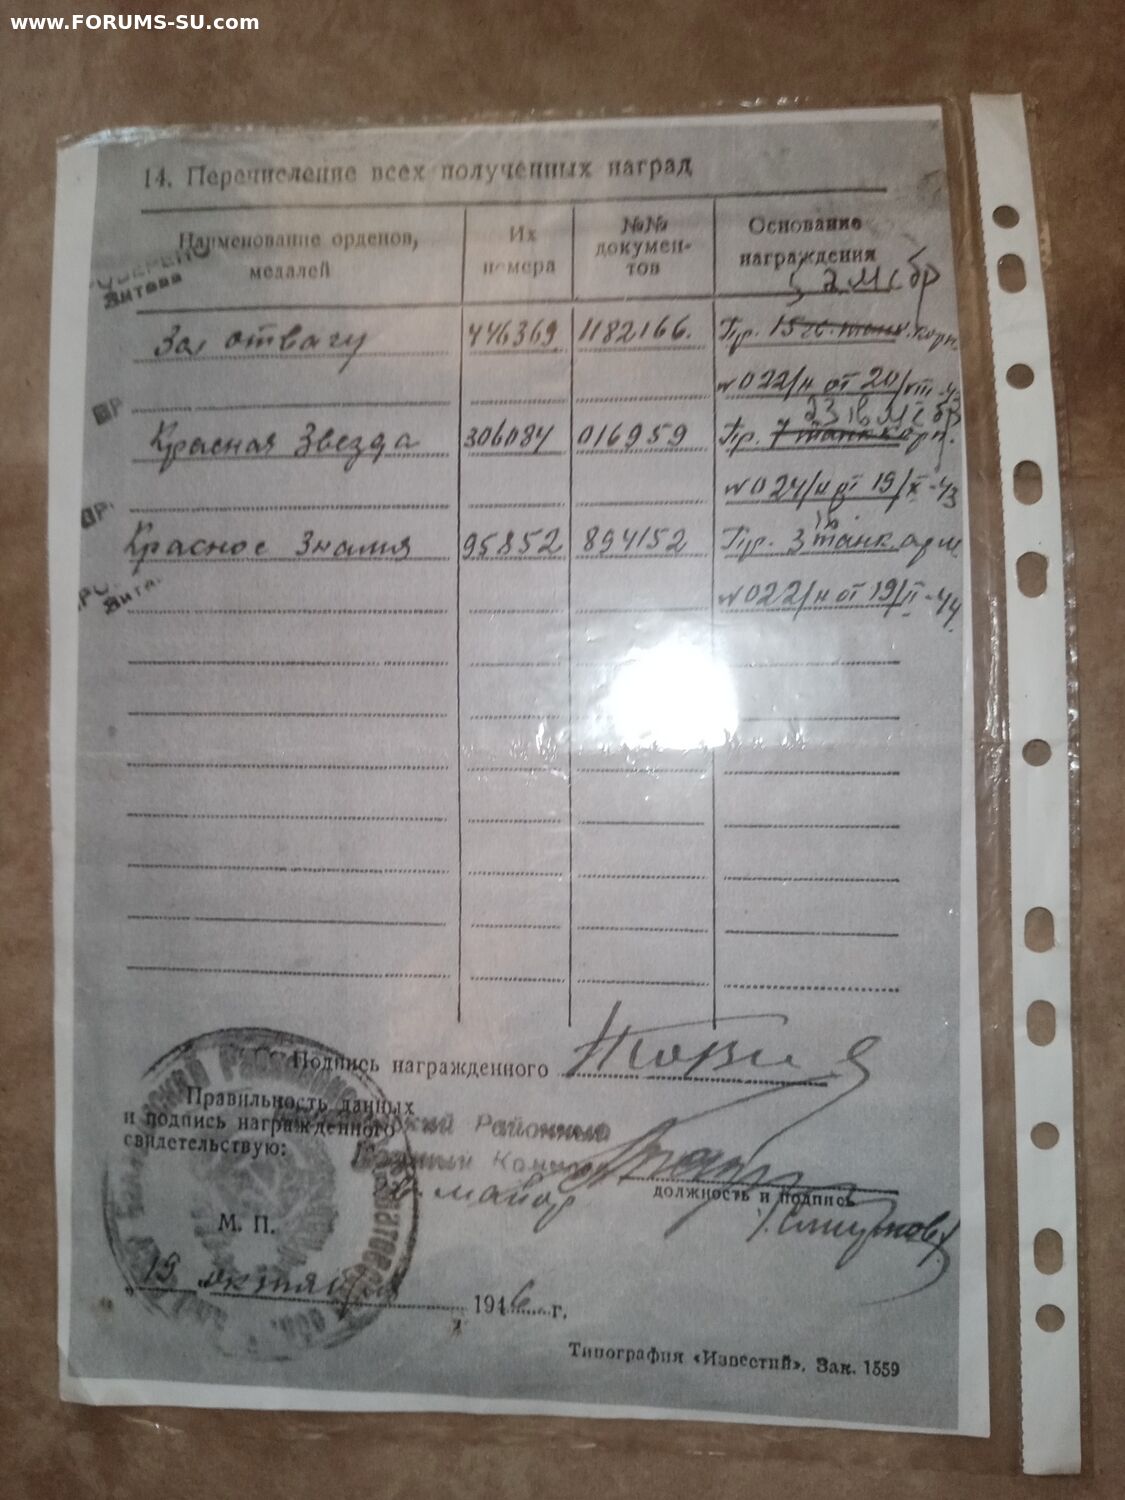 www.FORUMS-SU.com
14. Перечисление всех полученных наград
Наименование орденов, медалей
Их номера
№№ документов
Основание награждения
мсбр
За отвагу 446369 1182166. Пр. 15 корп.
№ 022/н от 20/VIII-43
23 гв мсбр
Красная Звезда 306084 016959 Пр. 7 танк корп.
№ 024/н от 19/X-43
гв.
Красное Знамя 95852 894152 Пр. 3 танк. арм
№ 022/н от 19/II-44
Подпись награжденного
Правильность данных
и подпись награжденного
свидетельствую:
Районный
майор
должность и подпись
М. П.
19 октября 1946 г.
Типография «Известий». Зак. 1559